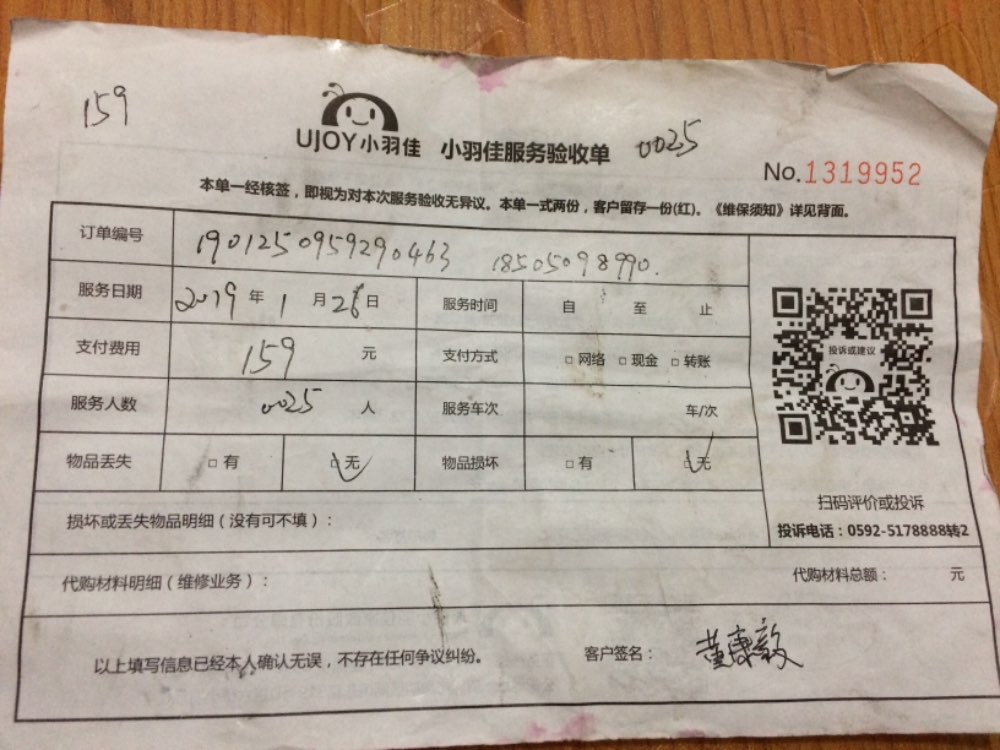 159
UJOY小羽佳 小羽佳服务验收单 0025
No.1319952
本单一经核签，即视为对本次服务验收无异议。本单一式两份，客户留存一份(红)。《维保须知》详见背面。
订单编号 190125095929046​3 18505098990.
服务日期 2019 年 1 月 26 日 服务时间 自 至 止
支付费用 159 元 支付方式 □ 网络 □ 现金 □ 转账
服务人数 0025 人 服务车次 车/次
物品丢失 □ 有 □ 无 物品损坏 □ 有 □ 无
投诉或建议
扫码评价或投诉
投诉电话：0592-5178888转2
损坏或丢失物品明细（没有可不填）：
代购材料明细（维修业务）： 代购材料总额： 元
以上填写信息已经本人确认无误，不存在任何争议纠纷。 客户签名：